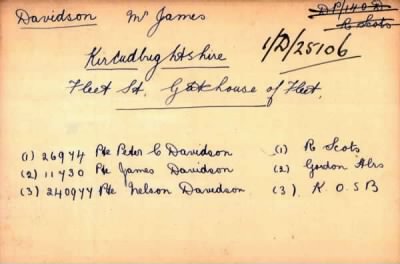 Davidson Mr James DP/140 D
R Scots
1/D/25106
Kircudbrightshire
Fleet St. Gatehouse of Fleet.
(1) 26974 Pte Peter C Davidson (1) R Scots
(2) 11730 Pte James Davidson (2) Gordon Hrs
(3) 240977 Pte Nelson Davidson (3). K. O. S B